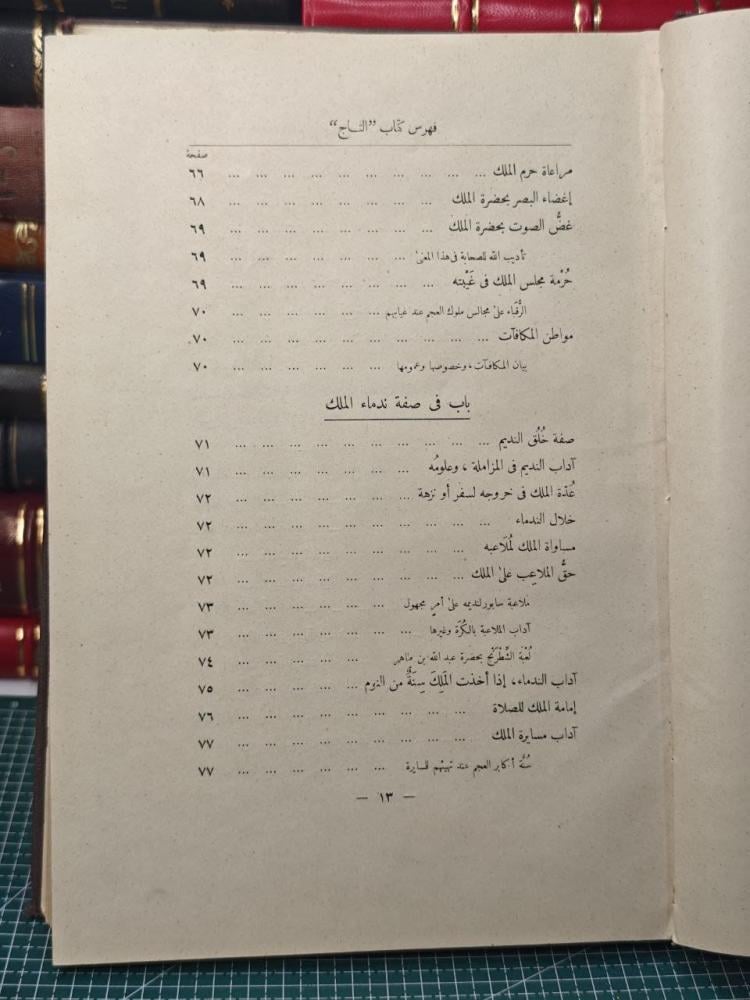 فهرس كتاب "التاج"
صفحة
مراعاة حرم الملك ... ... ... ... ... ... ... ... ... ... ٦٦
إغضاء البصر بحضرة الملك ... ... ... ... ... ... ... ... ... ٦٨
غضُّ الصوت بحضرة الملك ... ... ... ... ... ... ... ... ٦٩
تأديب الله للصحابة فى هذا المعنىٰ ... ... ... ... ... ... ... ٦٩
حُرْمة مجلس الملك فى غَيْبته ... ... ... ... ... ... ... ... ٦٩
الرُّقَباء علىٰ مجالس ملوك العجم عند غيابهم ... ... ... ... ... ... ... ٧٠
مواطن المكافآت ... ... ... ... ... ... ... ... ... ... ٧٠
بيان المكافآت، وخصوصها وعمومها ... ... ... ... ... ... ٧٠
باب فى صفة ندماء الملك
صفة خُلُق النديم ... ... ... ... ... ... ... ... ... ... ٧١
آداب النديم فى المزاملة ، وعلومُه ... ... ... ... ... ... ... ... ٧١
عُدّة الملك فى خروجه لسفر أو نزهة ... ... ... ... ... ... ... ٧٢
خلال الندماء ... ... ... ... ... ... ... ... ... ... ٧٢
مساواة الملك لمُلَاعبه ... ... ... ... ... ... ... ... ... ٧٢
حقُّ الملاعِب علىٰ الملك ... ... ... ... ... ... ... ... ... ٧٢
ملاعبة سابور لنديمه علىٰ أمرٍ مجهول ... ... ... ... ... ... ٧٣
آداب الملاعبة بالكُرَة وغيرها ... ... ... ... ... ... ... ٧٣
لُعْبة الشِّطْرَنْج بحضرة عبد الله بن طاهر ... ... ... ... ... ٧٤
آداب الندماء، إذا أخذت المَلِكَ سِنَةٌ من النوم ... ... ... ... ... ٧٥
إمامة الملك للصلاة ... ... ... ... ... ... ... ... ... ٧٦
آداب مسايرة الملك ... ... ... ... ... ... ... ... ... ٧٧
سُنَّة أكابر العجم عند تهيئهم للمسايرة ... ... ... ... ... ... ٧٧
— ١٣ —